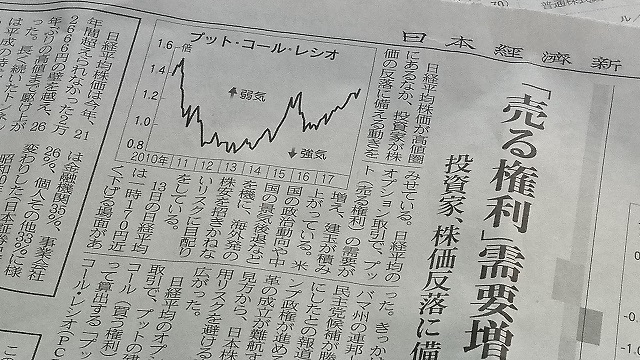 日本經濟新
「売る権利」需要増
投資家、株価反落に備
日経平均株価が高値圏
にあるなか、投資家が株
価の反落に備える動きを
みせている。日経平均の
オプション取引で、プッ
ト（売る権利）の需要が
増え、建玉が積み
上がっている。米
国の政治動向や中
国の景気後退など
を機に、海外発の
株安を招きかねな
いリスクに目配り
をしている。
13日の日経平均
は一時170円近
く下げる場面があ
った。きっか
バマ州の連邦
民主党候補が勝
にしたとの報道
ンプ政権が進め
革の成立が難航す
見方から、日本株
用リスクを避ける
広がった。
日経平均のオプ
取引で、プットの建
コール（買う権利）
って算出する「プッ
コール・レシオ(PC
プット・コール・レシオ
1.6倍
1.4
1.2
1.0
0.8
↑弱気
↓強気
2010年 11 12 13 14 15 16 17
日経平均株価は今年、21
年間超えられなかった2万
2666円の壁を越え、26
年ぶりの高値まで駆け上が
った。長く続いたトンネ
は平成の時
は金融機関35%、事業会社
26%、個人その他33%に様
変わりした（日本証券